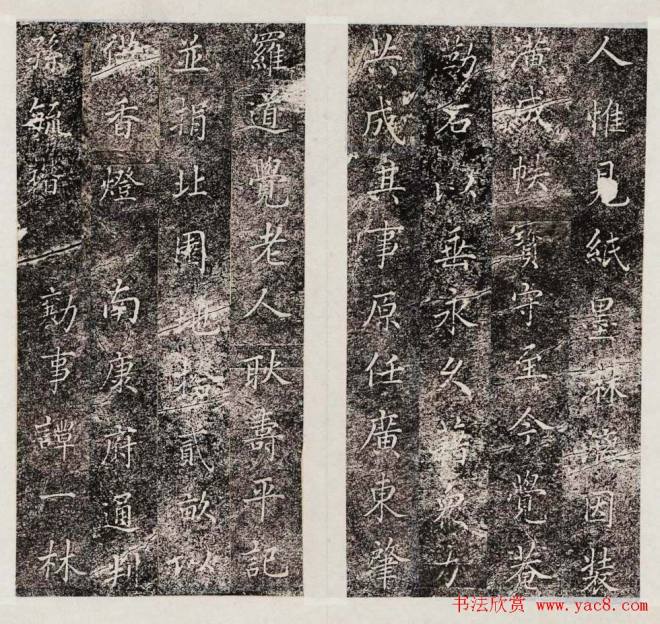 人惟見紙墨淋漓因裝
潢成帙寶守至今覺菴
勒石以垂永久藉眾力
共成其事原任廣東肇
羅道覺老人耿壽平記
並捐北園地拾貳畝以
供香燈 南康府通判
孫毓 勷事譚一林
书法欣赏 www.yac8.com